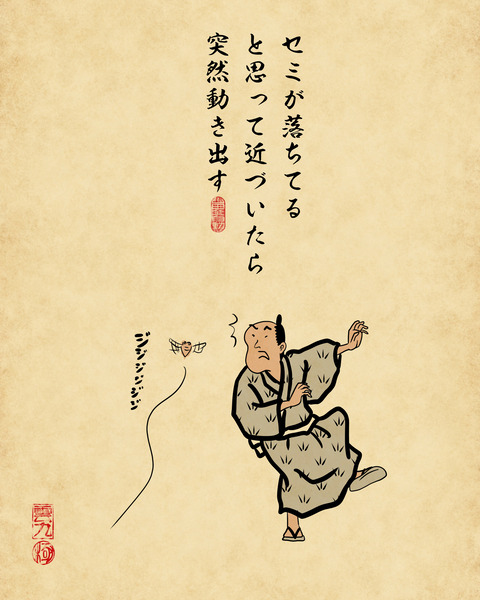 セミが落ちてる
と思って近づいたら
突然動き出す
ジジジジジジ